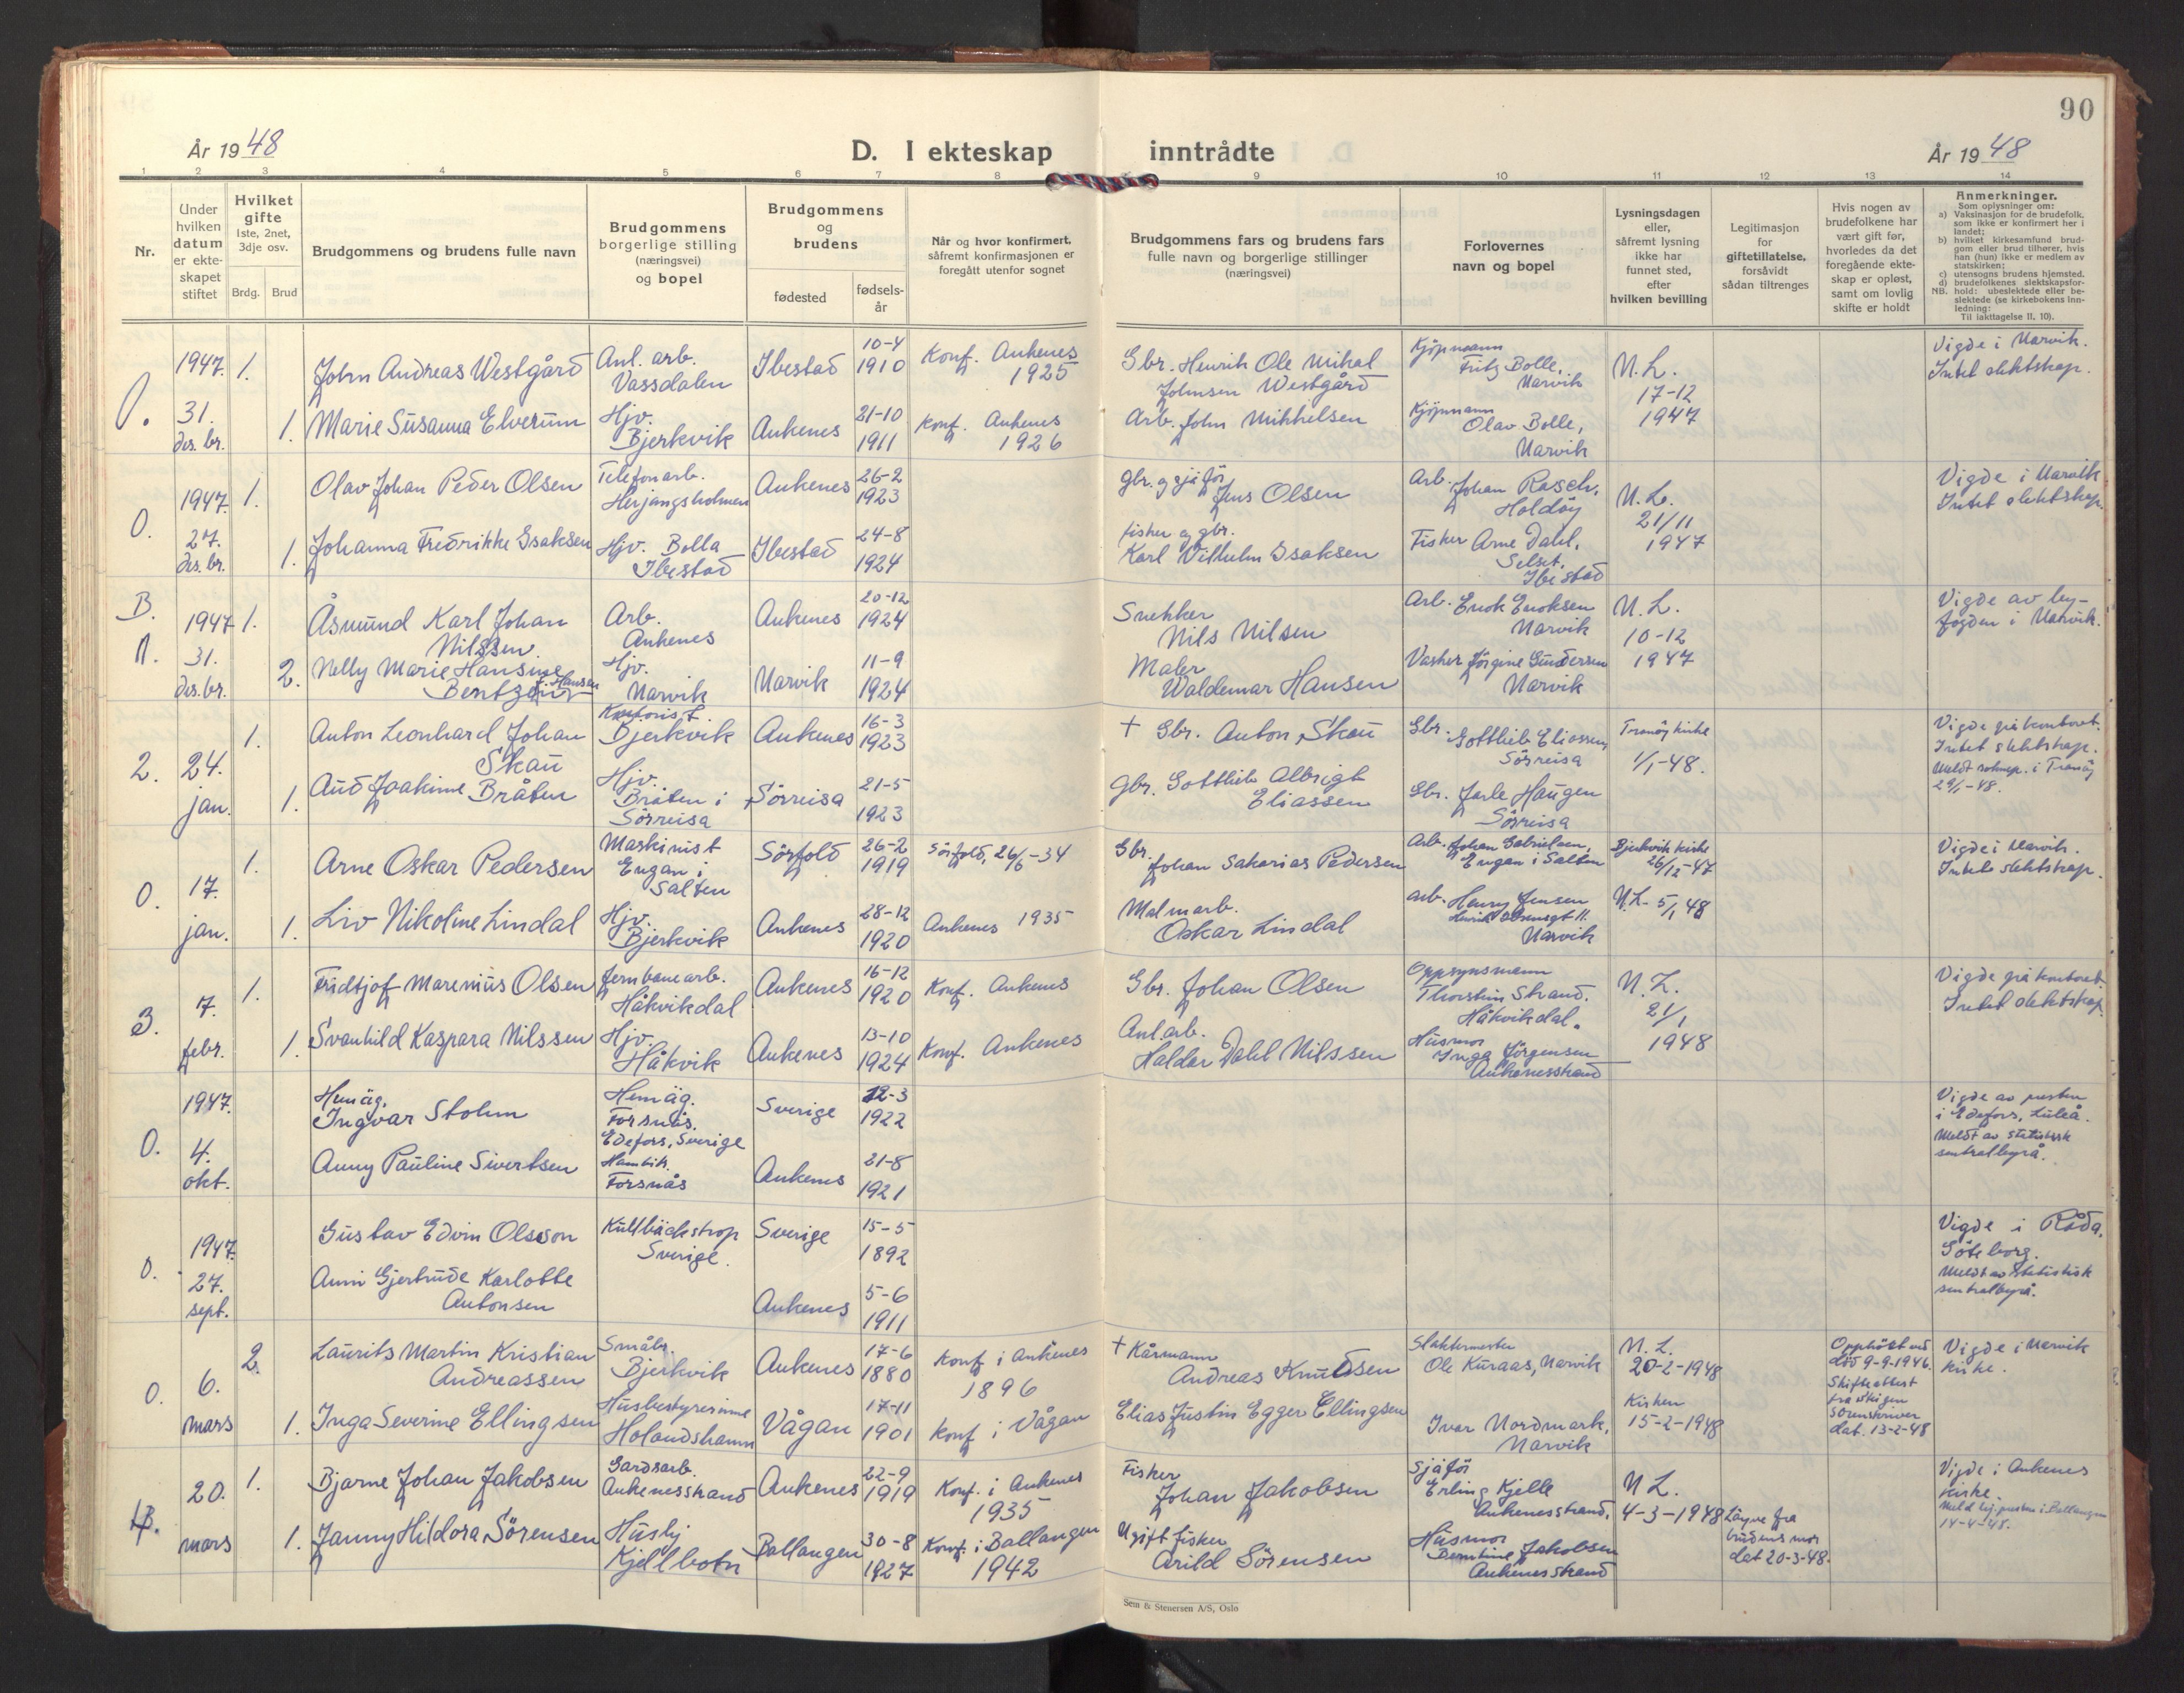 90
År 1948
D. I ekteskap inntrådte
År 1948
1 2 3 4 5 6 7 8 9 10 11 12 13 14
Nr.
Under hvilken datum er ekte-skapet stiftet
Hvilket gifte
1ste, 2net, 3dje osv.
Brdg. Brud
Brudgommens og brudens fulle navn
Brudgommens borgerlige stilling (næringsvei) og bopel
Brudgommens og brudens
fødested
fødsels-år
Når og hvor konfirmert, såfremt konfirmasjonen er foregått utenfor sognet
Brudgommens fars og brudens fars fulle navn og borgerlige stillinger (næringsvei)
Forlovernes navn og bopel
Lysningsdagen eller, såfremt lysning ikke har funnet sted, efter hvilken bevilling
Legitimasjon for giftetillatelse, forsåvidt sådan tiltrenges
Hvis nogen av brudefolkene har vært gift før, hvorledes da det foregående ekte-skap er opløst, samt om lovlig skifte er holdt
Anmerkninger.
Som oplysninger om:
a) Vaksinasjon for de brudefolk, som ikke er konfirmert her i landet;
b) hvilket kirkesamfund brud-gom eller brud tilhører, hvis han (hun) ikke er medlem av statskirken;
c) utensogns brudens hjemsted.
d) brudefolkenes slektskapsfor-
NB. hold: ubeslektede eller be-slektede (se kirkebokens Inn-ledning:
Til iakttagelse II, 10).
0. 1947. 31. des.br.
1. John Andreas Westgård
Anl. arb. Vassdalen
Ibestad 10-4 1910
Konf. Ankenes 1925
Gbr. Henrik Ole Mikal Johnsen Westgård
Kjøpmann Fritz Bolle, Narvik
N.L. 17-12 1947
Vigde i Narvik. Intet slektskap.
1. Marie Susanna Elverum
Hjv. Bjerkvik
Ankenes 21-10 1911
Konf. Ankenes 1926
Arb. John Mikkelsen
Kjøpmann Olav Bolle, Narvik
0. 1947. 27. des.br.
1. Olav Johan Peder Olsen
Telefonarb. Herjangsholmen
Ankenes 26-2 1923
Gbr. og sjåfør Jens Olsen
Arb. Johan Rasch, Holdøy
N.L. 21/11 1947
Vigde i Narvik Intet slektskap.
1. Johanna Fredrikke Isaksen
Hjv. Bolla Ibestad
Ibestad 24-8 1924
fisker og gbr. Karl Vilhelm Isaksen
Fisker Arne Dahl, Selset, Ibestad
B. 1. 1947 31. des.br.
1. Åsmund Karl Johan Nilssen.
Arb. Ankenes
Ankenes 20-12 1924
Snekker Nils Nilsen
Arb. Enok Enoksen Narvik
N.L. 10-12 1947
Vigde av by-fogden i Narvik.
2. Nelly Marie Hansine Bentzen f. Hansen
Hjv. Narvik
Narvik 11-9 1924
Maler Waldemar Hansen
Vasker Jørgine Gundersen Narvik
2. 24. jan.
1. Anton Leonhard Johan Skau
Kontorist. Bjerkvik
Ankenes 16-3 1923
+ Gbr. Anton Skau
Gbr. Gottlieb Eliassen, Sørreisa
Tranøy kirke 1/1-48.
Vigde på kontoret. Intet slektskap. Meldt soknep. i Tranøy 29/1-48.
1. Aud Joakime Bråten
Hjv. Bråten i Sørreisa
Sørreisa 21-5 1923
Gbr. Gottlieb Albrigt Eliassen
Gbr. Jarle Haugen Sørreisa
0. 17. jan.
1. Arne Oskar Pedersen
Maskinist Engan i Salten
Sørfold 26-2 1919
Sørfold, 26/6-34
Gbr. Johan Sakarias Pedersen
Arb. Johan Gabrielsen, Engan i Salten
Bjerkvik kirke 26/12-47
Vigde i Narvik. Intet slektskap.
1. Liv Nikoline Lindal
Hjv. Bjerkvik
Ankenes 28-12 1920
Ankenes 1935
Malmarb. Oskar Lindal
arb. Henry Jensen Narvik
N.L. 5/1 48
3. 7. febr.
1. Fridtjof Marenius Olsen
Jernbanearb. Håkvikdal
Ankenes 16-12 1920
Konf. Ankenes
Gbr. Johan Olsen
Oppsynsmann Thorstein Strand. Håkvikdal.
N.L. 21/1 1948
Vigde på kontoret. Intet slektskap.
1. Svanhild Kaspara Nilssen
Hjv. Håkvik
Ankenes 13-10 1924
Konf. Ankenes
Anl.arb. Haldor Dahl Nilssen
Husmor Inga Jørgensen Ankenesstrand
0. 1947. 4. okt.
Hemäg. Ingvar Stolm
Hemäg. Forsnäs. Edefors, Sverige
Sverige 12-3 1922
Vigde av presten i Edefors, Luleå. Meldt av Statistisk sentralbyrå.
Anny Pauline Sivertsen
Forsnäs
Ankenes 21-8 1921
0. 1947. 27. sept.
Gustav Edvin Olsson
Kullbäckstorp Sverige.
Sverige 15-5 1892
Vigde i Råda, Göteborg. Meldt av Statistisk sentralbyrå.
Anni Gjertrude Karlotte Antonsen
Ankenes 5-6 1911
0. 6. mars
2. Laurits Martin Kristian Andreassen
Småbr. Bjerkvik
Ankenes 17-6 1880
Konf i Ankenes 1896
+ Kårmann Andreas Knudsen
Slaktermester Ole Kuraas, Narvik
N.L. 20-2-1948
Kirken 15-2-1948
Opphört ved död 9-9-1946. Skifteattest fra Ofoten sorenskriver dat. 13-2-48
Vigde i Narvik kirke.
1. Inga Severine Ellingsen
Husbestyrerinne Holandshamn
Vågan 17-11 1901
Konf i Vågan
Elias Justin Egger Ellingsen
Ivar Nordmark, Narvik
4. 20. mars
1. Bjarne Johan Jakobsen
Gardsarb. Ankenesstrand
Ankenes 22-9 1919
Konf. i Ankenes 1935
Fisker Johan Jakobsen
Sjåför Erling Kjelle Ankenesstrand,
N L. 4-3-1948
Løyve fra brudens mor dat 20-3-48.
Vigde i Ankenes kirke. Meld t.sj. presten i Ballangen 14-4-48.
1. Janny Hildora Sörensen
Hushj Kjellbotn
Ballangen 30-8 1927
Konf. i Ballangen 1942
Ugift fisker Arild Sörensen
Husmor Berntine Jakobsen Ankenesstrand
Sem & Stenersen A/S, Oslo